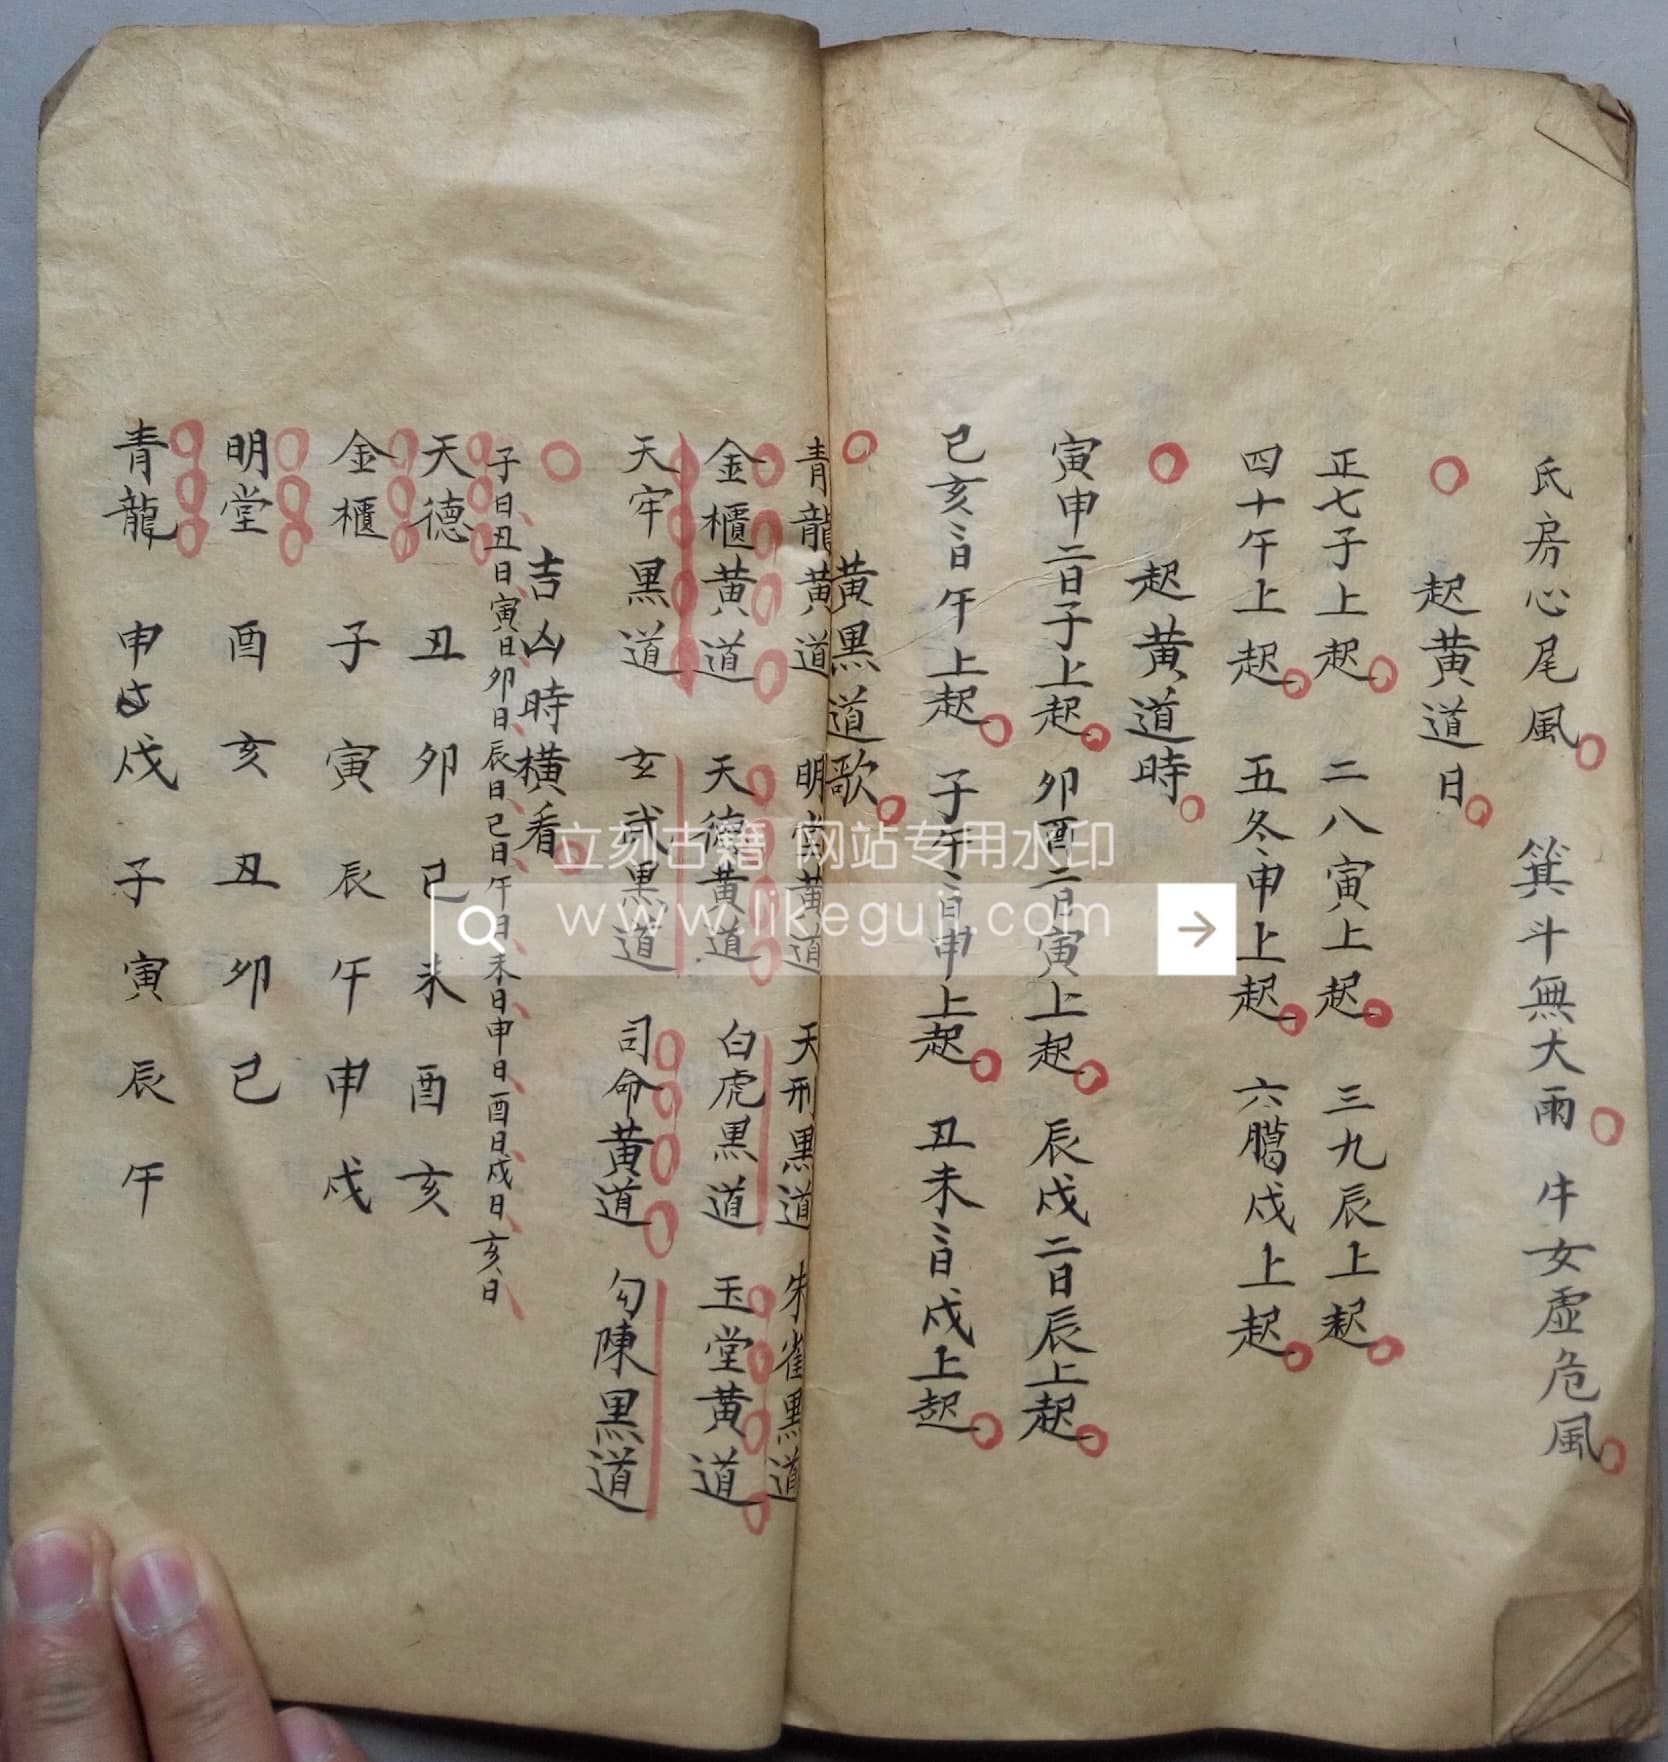 氏房心尾風 箕斗無大雨 牛女虛危風
起黄道日
正七子上起 二八寅上起 三九辰上起
四十午上起 五冬申上起 六臈戍上起
起黄道時
寅申二日子上起 卯酉二日寅上起 辰戍二日辰上起
巳亥二日午上起 子午二日申上起 丑未二日戍上起
黄黑道歌
青龍黄道 明堂黄道 天刑黑道 朱雀黑道
金櫃黄道 天德黄道 白虎黑道 玉堂黄道
天牢黑道 玄武黑道 司命黄道 勾陳黑道
吉凶時横看
子日丑日寅日卯日辰日巳日午日未日申日酉日戍日亥日
天德 丑 卯 巳 未 酉 亥
金櫃 子 寅 辰 午 申 戍
明堂 酉 亥 丑 卯 巳
青龍 申 戍 子 寅 辰 午
立刻古籍 网站专用水印
www.likeguji.com